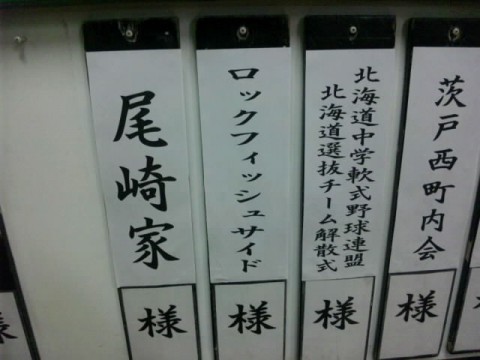 尾崎家
様
ロックフィッシュサイド
様
北海道中学軟式野球連盟
北海道選抜チーム解散式
様
茨戸西町内会
様
様